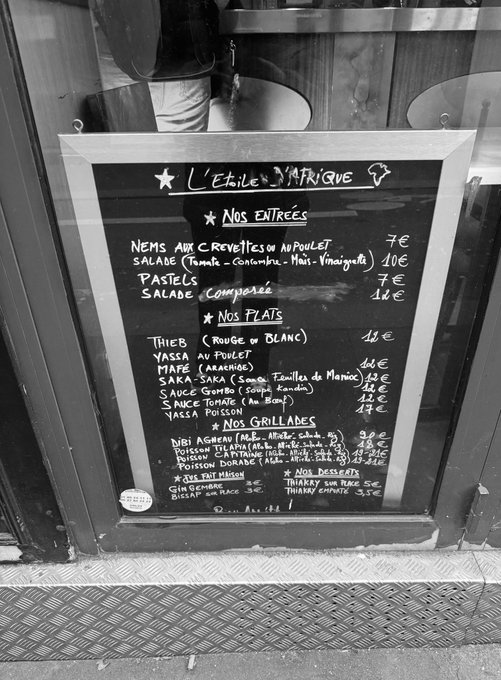 L'Etoile D'AFRiQUE
NOS ENTREÉS
NEMS AUX CREVETTES OU AU POULET 7€
SALADE (Tomate - Concombre - Maïs - Vinaigrette) 10€
PASTELS 7€
SALADE composée 12€
NOS PLATS
THIEB (ROUGE OU BLANC) 12€
YASSA AU POULET
MAFÉ (ARACHIDE) 10€
SAKA-SAKA (Sauce Feuilles de Manioc) 12€
SAUCE GOMBO (Soupe Kandia) 12€
SAUCE TOMATE (Au Bœuf) 12€
YASSA POISSON 17€
NOS GRILLADES
DIBI AGNEAU (Aloko - Attiéké - Salade - Riz) 20€
POISSON TILAPIA (Aloko - Attiéké - Salade - Riz) 18€
POISSON CAPITAINE (Aloko - Attiéké - Salade - Riz) 19-21€
POISSON DORADE (Aloko - Attiéké - Salade - Riz) 19-21€
JUS FAIT MAISON
GINGEMBRE 3€
BISSAP SUR PLACE 3€
NOS DESSERTS
THIAKRY SUR PLACE 5€
THIAKRY EMPORTÉ 3,5€